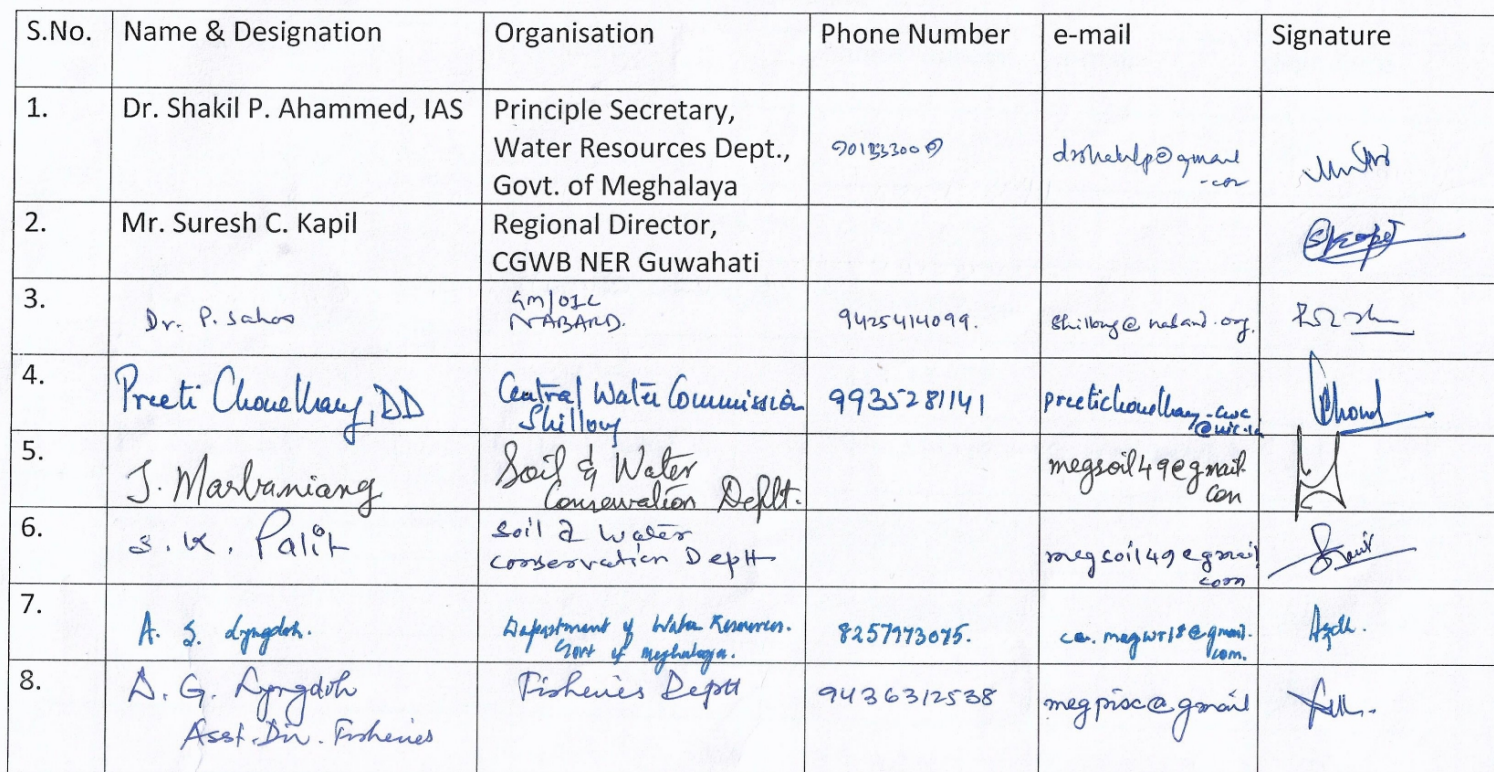 S.No. Name & Designation Organisation Phone Number e-mail Signature
1. Dr. Shakil P. Ahammed, IAS Principle Secretary,
Water Resources Dept.,
Govt. of Meghalaya
2. Mr. Suresh C. Kapil Regional Director,
CGWB NER Guwahati
3. Dr. P. Sahoo GM/OIC
NABARD. 9425414099. shillong@nabard.org.
4. Preeti Choudhary, DD Central Water Commission
Shillong 9935281141 preetichoudhary-cwc
@nic.in
5. J. Marbaniang Soil & Water
Conservation Deptt. megsoil49@gmail.
com
6. S. K. Palit Soil & Water
conservation Deptt megsoil49@gmail
com
7. A. S. Lyngdoh. Department of Water Resources.
Govt of Meghalaya. 8257973075.
com.
8. A. G. Lyngdoh Fisheries Deptt 9436312538 megpisc@gmail
Asst. Dir. Fisheries